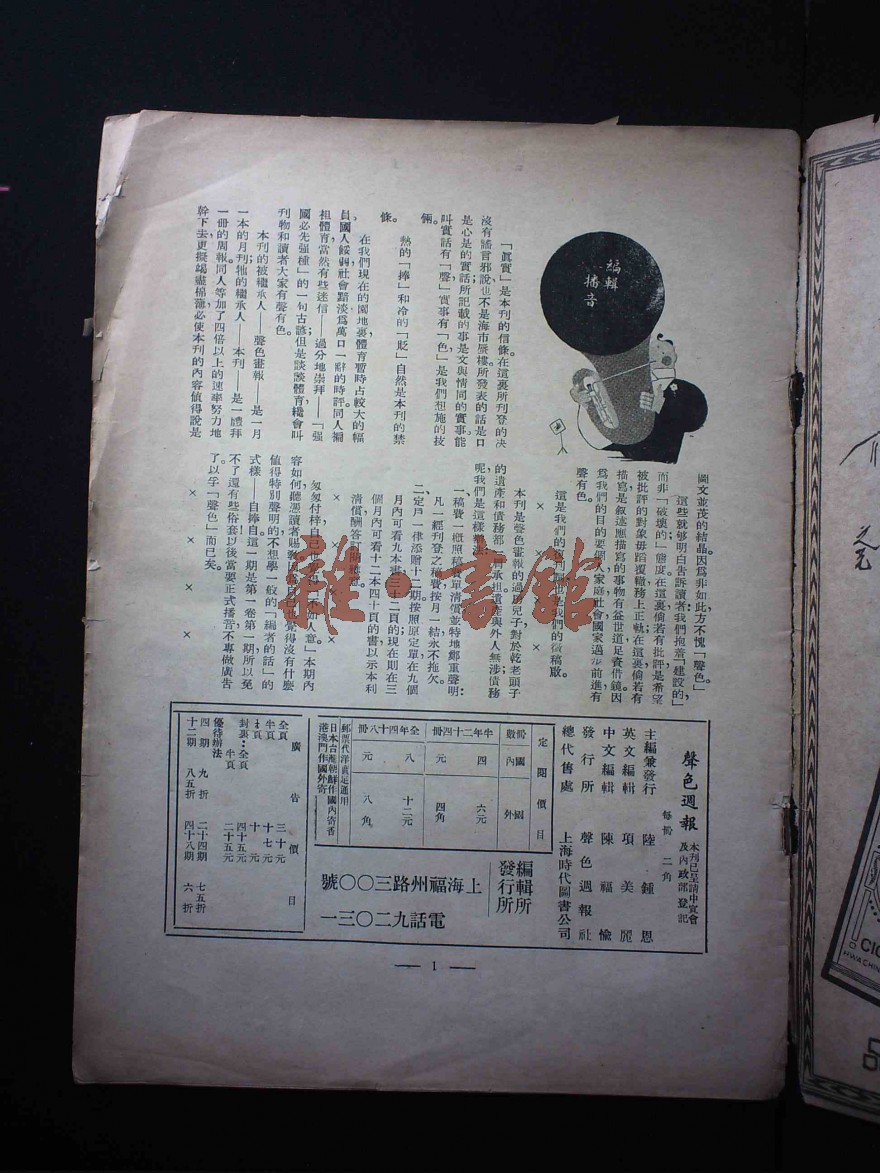 編輯
播音
「眞實」是本刊的信條。在這裏所刊登的决
沒有謠言邪說也不是海市蜃樓所發表的話是口
是心是的實話所記載的事是文與情同的實事能
叫實話有「聲」實事有「色」是我們想施的技
倆。
熱的「捧」和冷的「貶」自然是本刊的禁
條。
在我們現在的園地裏體育暫時占較大的幅
員、國人餒弱社會黯淡爲萬口一辭的時評同人襧
祖體育當然有些迷信——過分地崇拜——「强
國必先强種」的一句古諺但是談談體育纔會叫
刋物和讀者大家有聲有色。
本刊的被繼承人——聲色畫報——是一月
一本的月刊牠的繼承人——本刊——是一禮拜
一冊的周報同人等加了四倍以上的速率努力地
幹下去更擬竭盡棉薄必使本刊的內容值得說是
圖文並茂的結晶因爲非如此方不愧「聲色」
這些就够明白告訴讀者：我們抱着「建設的」
而非「破壞的」態度在這裏倘若有批評是希望
被批評的對象毋蹈覆轍務上正軌在這裏倘若有
描寫是敘述應描寫的事物有益世道足資借鏡因
爲我們的目的要個人家庭社會國家過步前進有
聲有色。
× × × ×
這是我們的也是我們的徵稿啟
本刊是聲色畫報的過房兒子對於乾老頭子
的遺產和債務部承担遺產與外人無涉債務
呢我們是這樣辦法：
一、稿費一槪照稿費單清償並特地鄭重聲明：
凡一經刊登之稿費按月一結永不拖欠。
二、定戶一律添贈十二期。按照原定單在九個
月內可看九本書三十二頁的現在則在三
個月內可看十二本四十頁的書以示本利
清償酬答訂閱雅意。
× × × ×
匆匆付梓自己也覺得「不如人意」本期內
容如何聽憑讀者賜教因爲自己也覺得沒有什麼
值得特別聲明的不想學一般的「編者的話」的
式樣——自捧自。這一期是第一卷第一期所以免
不了還有些俗套以後當要正式播音不專做廣告
了以孚「聲色」而已矣。
× × × ×
聲色週報
本刊已呈請中宣會
及內政部登記
每冊 二角
主編兼發行 陸鍾恩
英文編輯 項美麗
中文編輯 陳福愉
發行所 聲色週報社
總代售處 上海時代圖書公司
定閱價目
冊數 國內 國外
半年二十四冊 四元 六元四角
全年四十八冊 八元 十二元八角
郵票代洋實足通用
日本台灣朝鮮作國內寄香
港澳門作國外寄
編輯所
發行所
上海福州路三〇〇號
電話九二〇三一
廣告價目
全頁 三十元
半頁 十七元
¼頁 十元
封裏：全頁 四十五元
半頁 二十五元
優待辦法
四期 九折 二十四期 七五折
十二期 八五折 四十八期 六折
— 1 —
雜·書館
CIG
HWACHIN